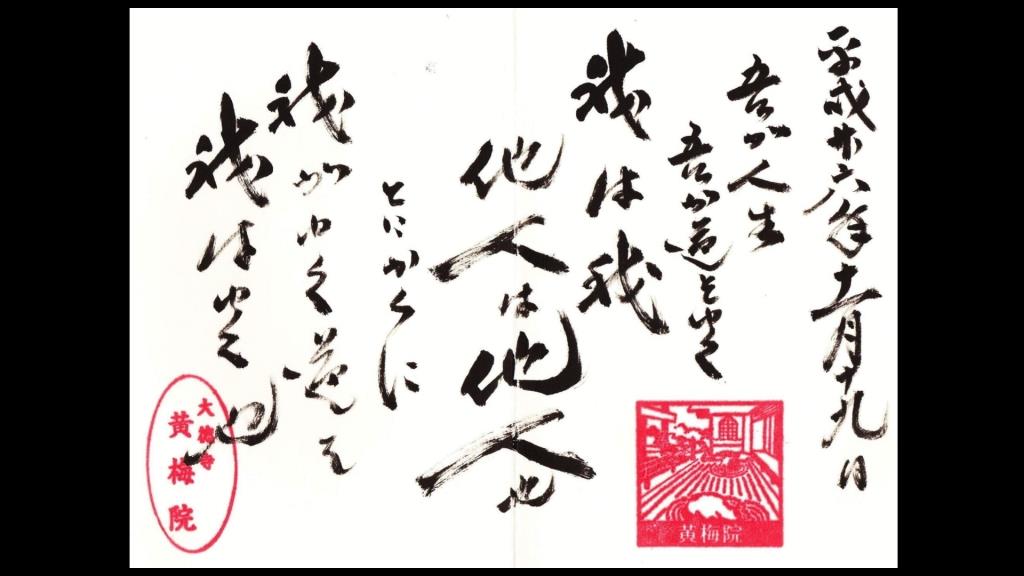 平成廿六年十一月十九日
吾が人生
吾が道を ゆく
我は我
他人は他人也
とにかくに
我がゆく道を
我はゆく也
大徳寺
黄梅院
黄梅院